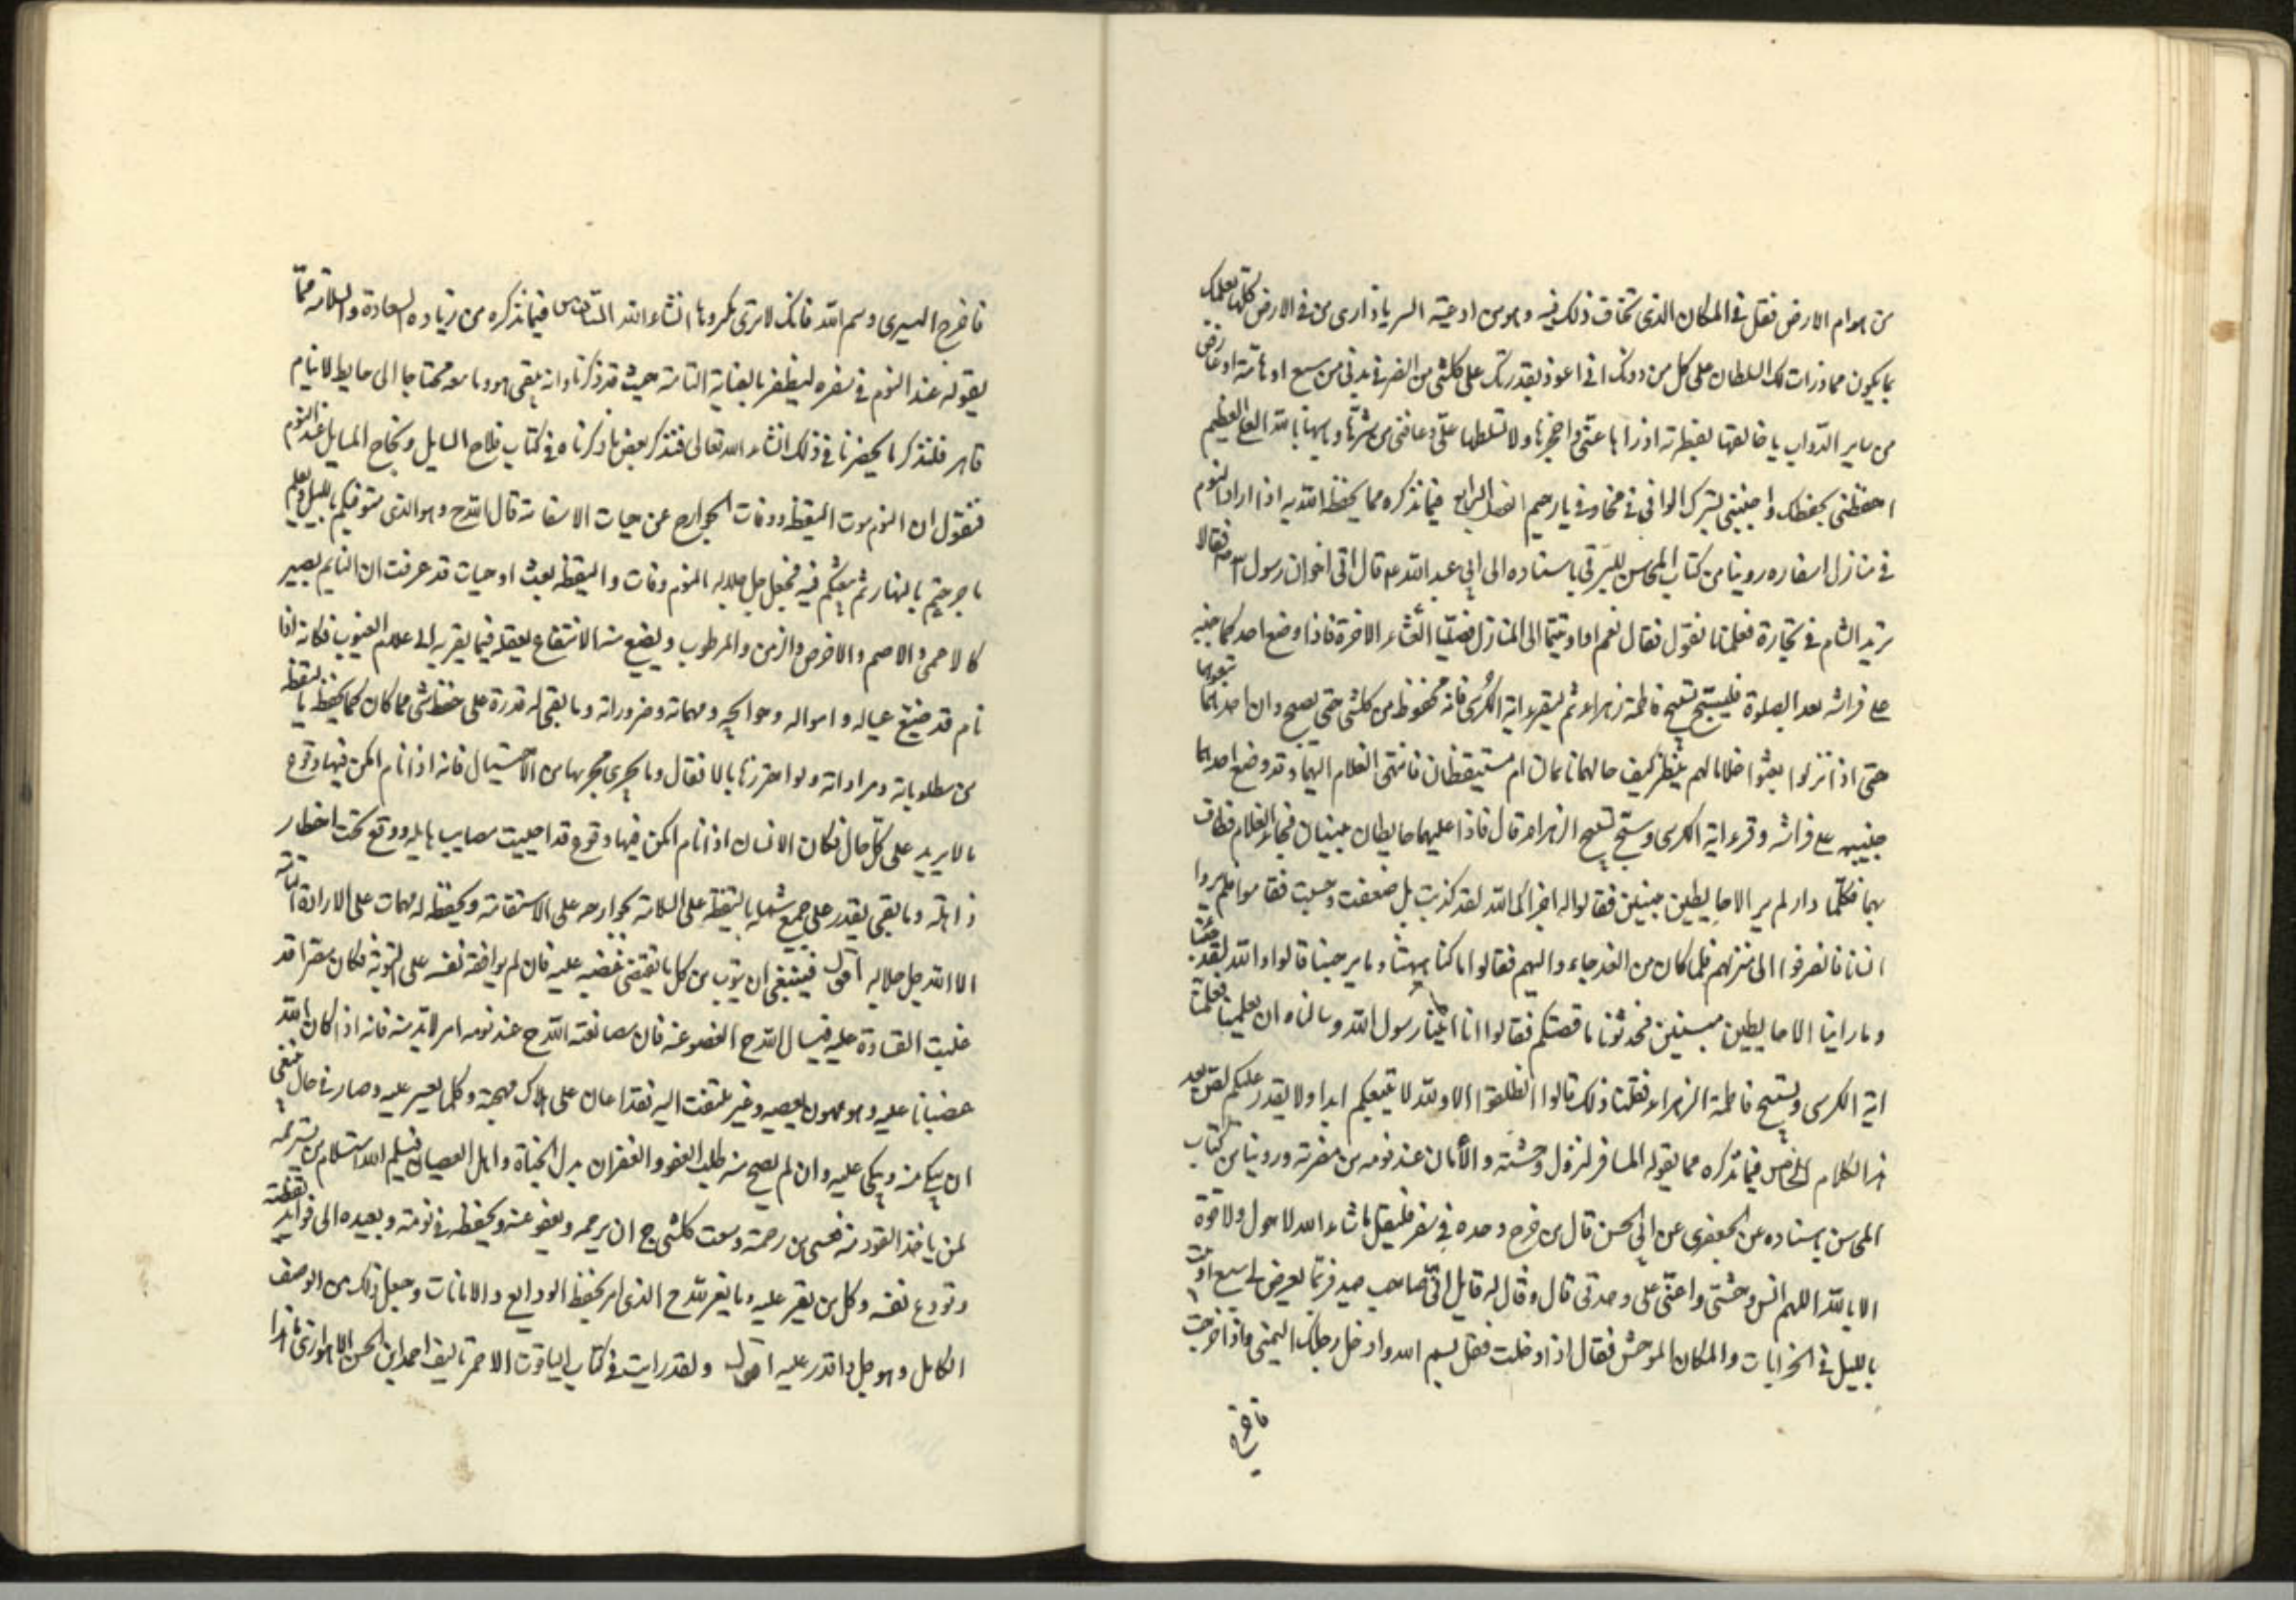 من هوام الارض فقل في المكان الذي تخاف ذلك فيه وهو من ادعية السر يا ذارى من في الارض كلها بعلمك
بما يكون مما ذرات لك السلطان على كل من دونك اني اعوذ بقدرتك على كلشي من الضر في بدني من سبع او هامة او عارض
من ساير الدواب يا خالقها بفطرته اذراها عني واحجزها ولا تسلطها علي وعافني من شرها وباسها يا الله العلي العظيم
احفظني بحفظك واجنبني بسترك الوافي في مخاوفي يا رحيم الفصل الرابع فيما نذكره مما يحفظه الله به اذا اراد النوم
في منازل اسفاره روينا من كتاب المحاسن للبرقي باسناده الى ابي عبد الله ع قال اتى اخوان رسول الله ص فقالا
نريد الشام في تجارة فعلمنا ما نقول فقال نعم اذا اويتما الى المنازل فصليا العشاء الاخرة فاذا وضع احدكما جنبه
على فراشه بعد الصلوة فليسبح تسبيح فاطمة زهراء ثم ليقرء اية الكرسي فانه محفوظ من كلشي حتى يصبح وان لصوصا تبعوهما
حتى اذا نزلوا بعثوا غلاما لهم ينظر كيف حالهما نامان ام مستيقظان فانتهى الغلام اليهما وقد وضع احدهما
جنبيه على فراشه وقرء اية الكرسي وسبح تسبيح الزهراء قال فاذا عليهما حايطان مبنيان فجاء الغلام فطاف
بهما فكلما دار لم ير الا حايطين مبنيين فقالوا له اخزاك الله لقد كذبت بل ضعفت وجبنت فقاموا فلم يروا
انسانا فانصرفوا الى منزلهم فلما كان من الغد جاءوا اليهم فقالوا اما كنا ههنا وما برحنا قالوا والله لقد جئنا
وما راينا الا حايطين مبنيين فحدثونا ما قصتكم فقالوا انا اتينا رسول الله وسالناه ان يعلمنا فعلمنا
اية الكرسي وتسبيح فاطمة الزهراء فقلنا ذلك قالوا انطلقوا الا والله لا نتبعكم ابدا ولا يقدر عليكم لص بعد
هذا الكلام الخامس فيما نذكره مما يقوله المسافر لزوال وحشته والأمان عند نومه من مضرته وروينا من كتاب
المحاسن باسناده عن الجعفري عن ابي الحسن قال من خرج وحده في سفر فليقل ما شاء الله لا حول ولا قوة
الا بالله اللهم انس وحشتي واعني على وحدتي قال وقال له قايل اني صاحب صيد فربما يعرض لي سبع او ابيت
بالليل في الخرابات والمكان الموحش فقال اذا دخلت فقل بسم الله وادخل رجلك اليمنى واذا خرجت
فاخرج
فاخرج اليسرى وسم الله فانك لا ترى مكروها انشاء الله السادس فيما نذكره من زيادة السعادة والسلامة مما
يقوله عند النوم في سفره ليظفر بالعناية التامة حيث قد ذكرنا وانه بقي هو وما معه محتاجا الى حايط لا ينام
قاهر فلنذكر ما يحضرنا في ذلك انشاء الله تعالى فنذكر بعض ما ذكرناه في كتاب فلاح السايل ونجاح المسايل عند النوم
فنقول ان النوم موت اليقظة ووفات الجوارح عن حيات الاستقامة قال الله ج وهو الذي يتوفيكم بالليل ويعلم
ما جرحتم بالنهار ثم يبعثكم فيه فجعل جل جلاله النوم وفات واليقظة بعث او حيات قد عرفت ان النايم يصير
كالاعمى والاصم والاخرس والزمن والمرطوب ويضيع منه الانتفاع بعقله فيما يقربه الى علام الغيوب فكانه اذا
نام قد ضيع عياله وامواله وحوايجه ومهماته وضروراته وما بقي له قدرة على حفظ شي مما كان كما يحفظ باليقظة
من مطلوباته ومراداته ولو احترزها بالاقفال وما يجري مجريها من الاحتيال فانه اذا نام امكن فيها وقوع
ما لا يريد على كل حال فكان الانسان اذا نام امكن فيها وقوع قد احييت مصايب هايله ووقع تحت اخطار
ذاهلة وما بقي يقدر على جمع شملها باليقظة على السلامة بجوارحه على الاستقامة وبحفظه لمهمات على الارادة التامة
الا الله جل جلاله اقول فينبغي ان يتوب من كل ما يقتضي غضبه عليه فان لم يوافقه نفسه على التوبة فكان مصرا قد
غلبت القساوة عليه فيسال الله ج العفو عنه فان مصانعة الله ج عند نومه امر لابد منه فانه اذا كان الله
غضبانا عليه وهو مهون بعصيه وغير ملتفت اليه فقد اعان على هلاك مهجته وكلما يعسير عليه وصار في حال ينبغي
ان يبكي منه ويبكى عليه وان لم يصح منه طلب العفو والغفران بذل الجناة واهل العصيان فيسلم استسلام من
لمن ياخذ القود منه فعسى من رحمته وسعت كلشي ج ان يرحمه ويعفو عنه ويحفظه في نومته ويعيده الى فوايد يقظته
وتودع نفسه وكل من يعز عليه وما يعز الله ج الذي امر بحفظ الودايع والامانات وجعل ذلك من الوصف
الكامل وهو جل واقدر عليه اقول ولقد رايت في كتاب الياقوت الاحمر تاليف احمد ابن الحسن الاهوازي ما هذا